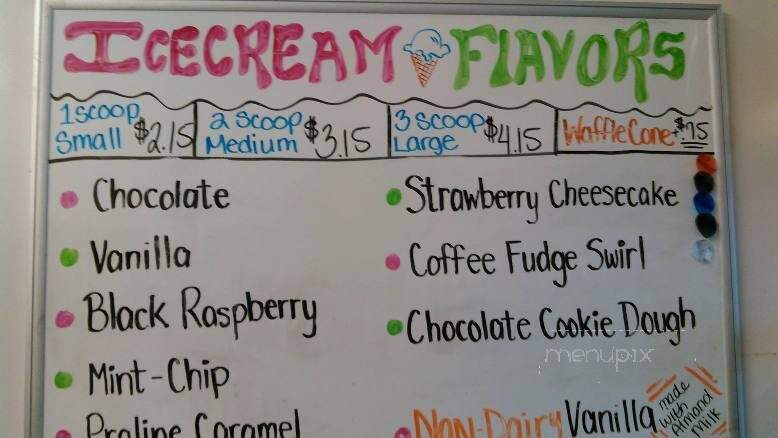 ICECREAM FLAVORS
1 scoop Small $2.15
2 scoop Medium $3.15
3 scoop Large $4.15
Waffle Cone +$.75
Chocolate
Vanilla
Black Raspberry
Mint-Chip
Praline Caramel
Strawberry Cheesecake
Coffee Fudge Swirl
Chocolate Cookie Dough
Non-Dairy Vanilla
made with Almond Milk
menupix